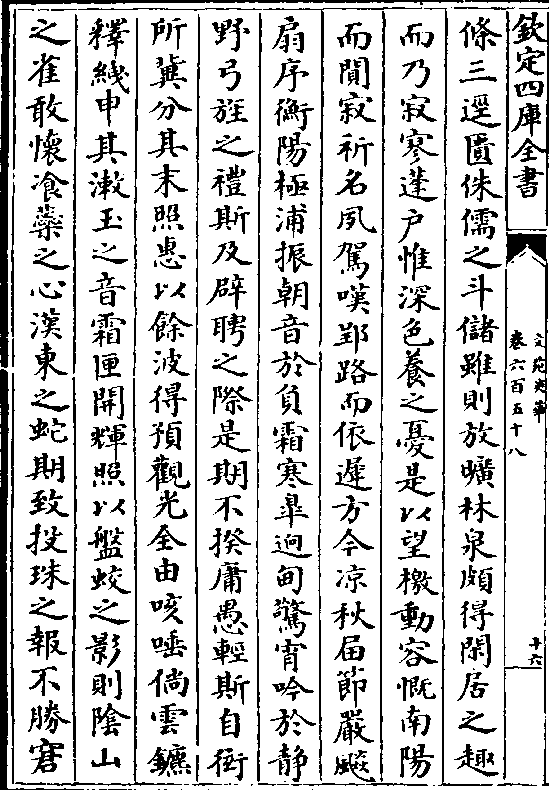 欽定四庫全書
文苑英華
卷六百五十八
十六
條三逕匱侏儒之斗儲雖則放曠林泉頗得閑居之趣
而乃寂寥蓬户惟深色養之憂是以望檄動容慨南陽
而閴寂祈名夙駕嘆郢路而依遲方今凉秋届節嚴飈
扇序衡陽極浦振朝音於負霜寒臯逈甸驚宵吟於静
野弓旌之禮斯及辟聘之際是期不揆庸愚輕斯自衒
所冀分其末照惠以餘波得預觀光全由咳唾倘雲鑣
釋綫申其潄玉之音霜匣開輝照以盤蛟之影則陰山
之雀敢懐飡藥之心漢東之蛇期致投珠之報不勝窘